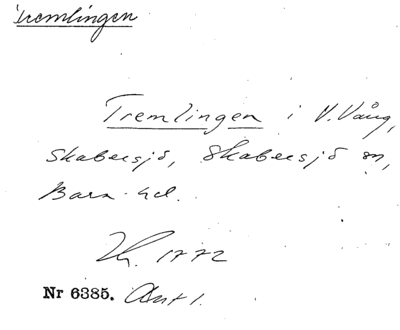 Tremlingen
Tremlingen i V. Vång,
Skabersjö, Skabersjö sn,
Bara hd.
1772
Nr 6385. Ant 1.